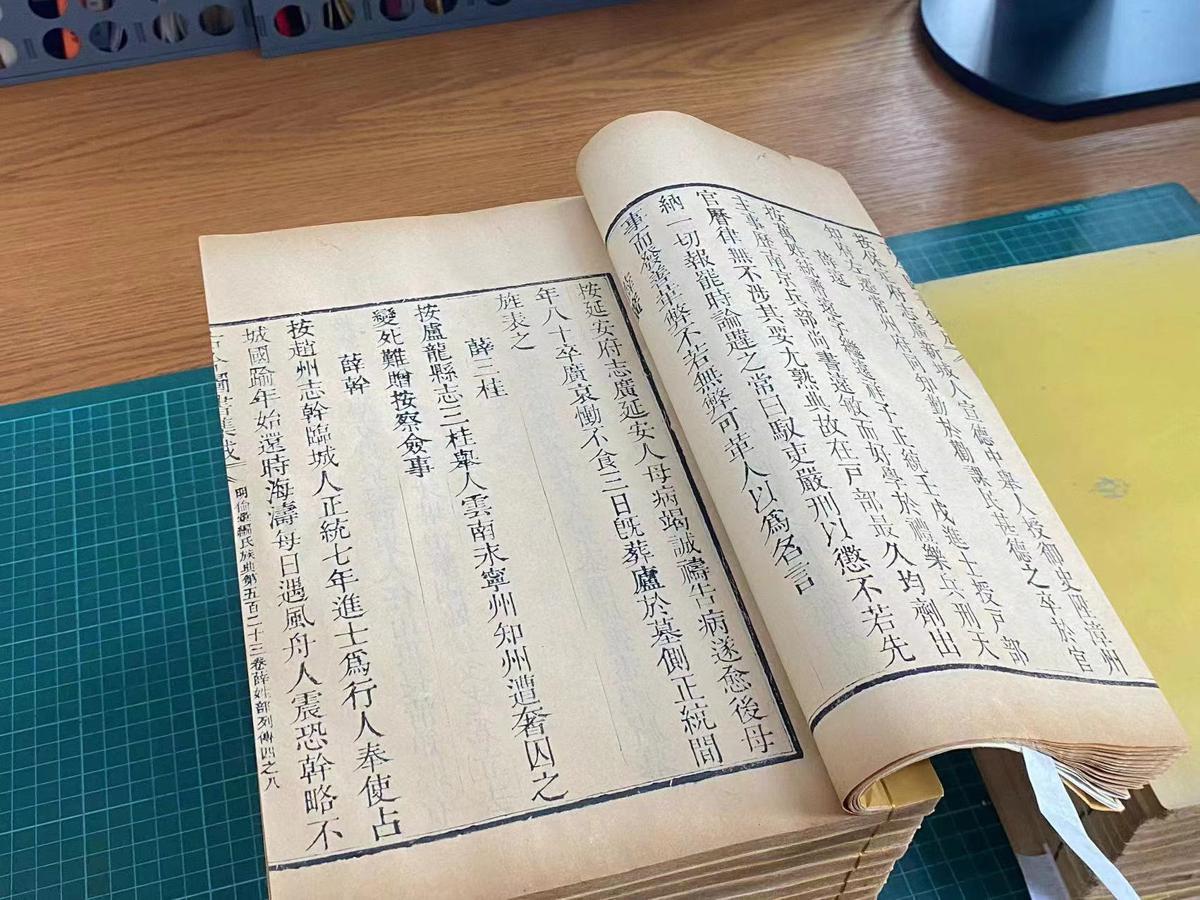 府志廣新城人宣德中舉人授御史陞漳州
知府左遷常州府同知勤於勸課民甚德之卒於官
薛遠
按萬姓統譜遠字繼遠祥子正統壬戌進士授戸部
主事歷南京兵部尚書遠敏而好學於禮樂兵刑天
官曆律無不涉其要尤熟典故在戸部最久均劑出
納一切報罷時論韙之常曰馭吏嚴刑以懲不若先
事而發善革弊不若無弊可革人以爲名言
薛
按延安府志廣延安人母病竭誠禱告病遂愈後母
年八十卒廣哀慟不食三日旣葬廬於墓側正統間
旌表之
薛三桂
按盧龍縣志三桂舉人雲南永寧州知州遭奢囚之
變死難贈按察僉事
薛幹
按趙州志幹臨城人正統七年進士爲行人奉使占
城國踰年始還時海濤每日遇風舟人震恐幹略不
圖書集成
明倫彙編氏族典第五百二十三卷薛姓部列傳四之八